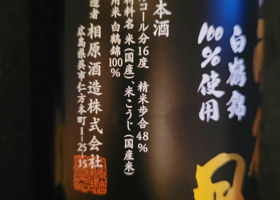 白鶴錦
100%使用
本酒
コール分16度 精米歩合48%
材料名 米(国産)、米こうじ(国産米)
用米 白鶴錦100%
造者 相原酒造株式会社
広島県呉市仁方本町1-25-15